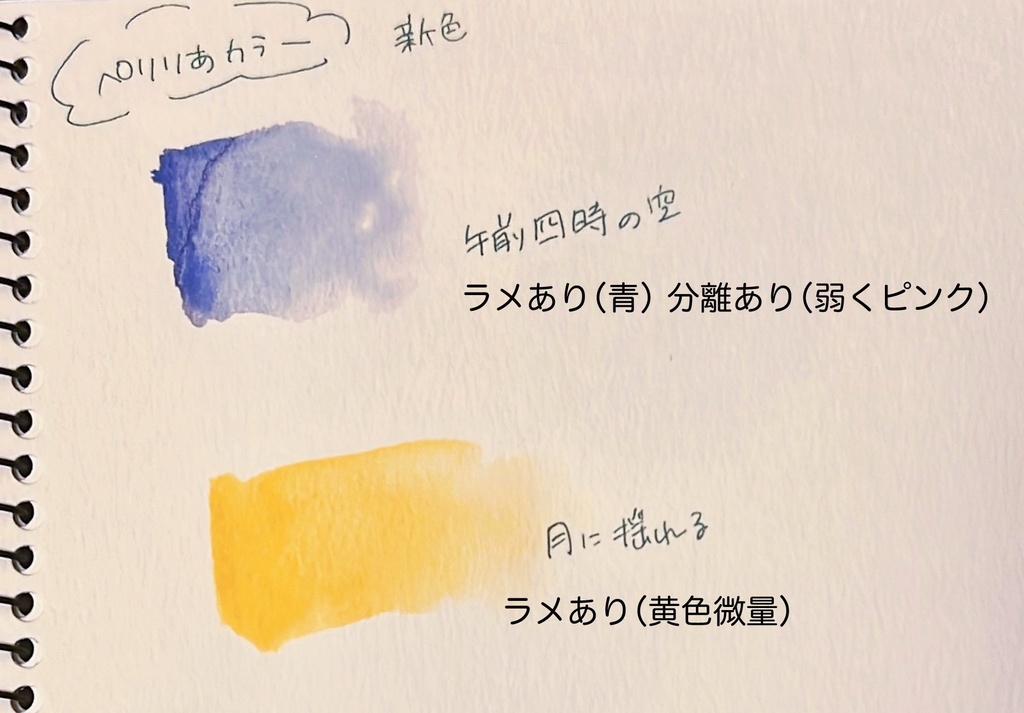 ペリリあカラー 新色
午前四時の空
ラメあり(青) 分離あり(弱くピンク)
月に揺れる
ラメあり(黄色微量)